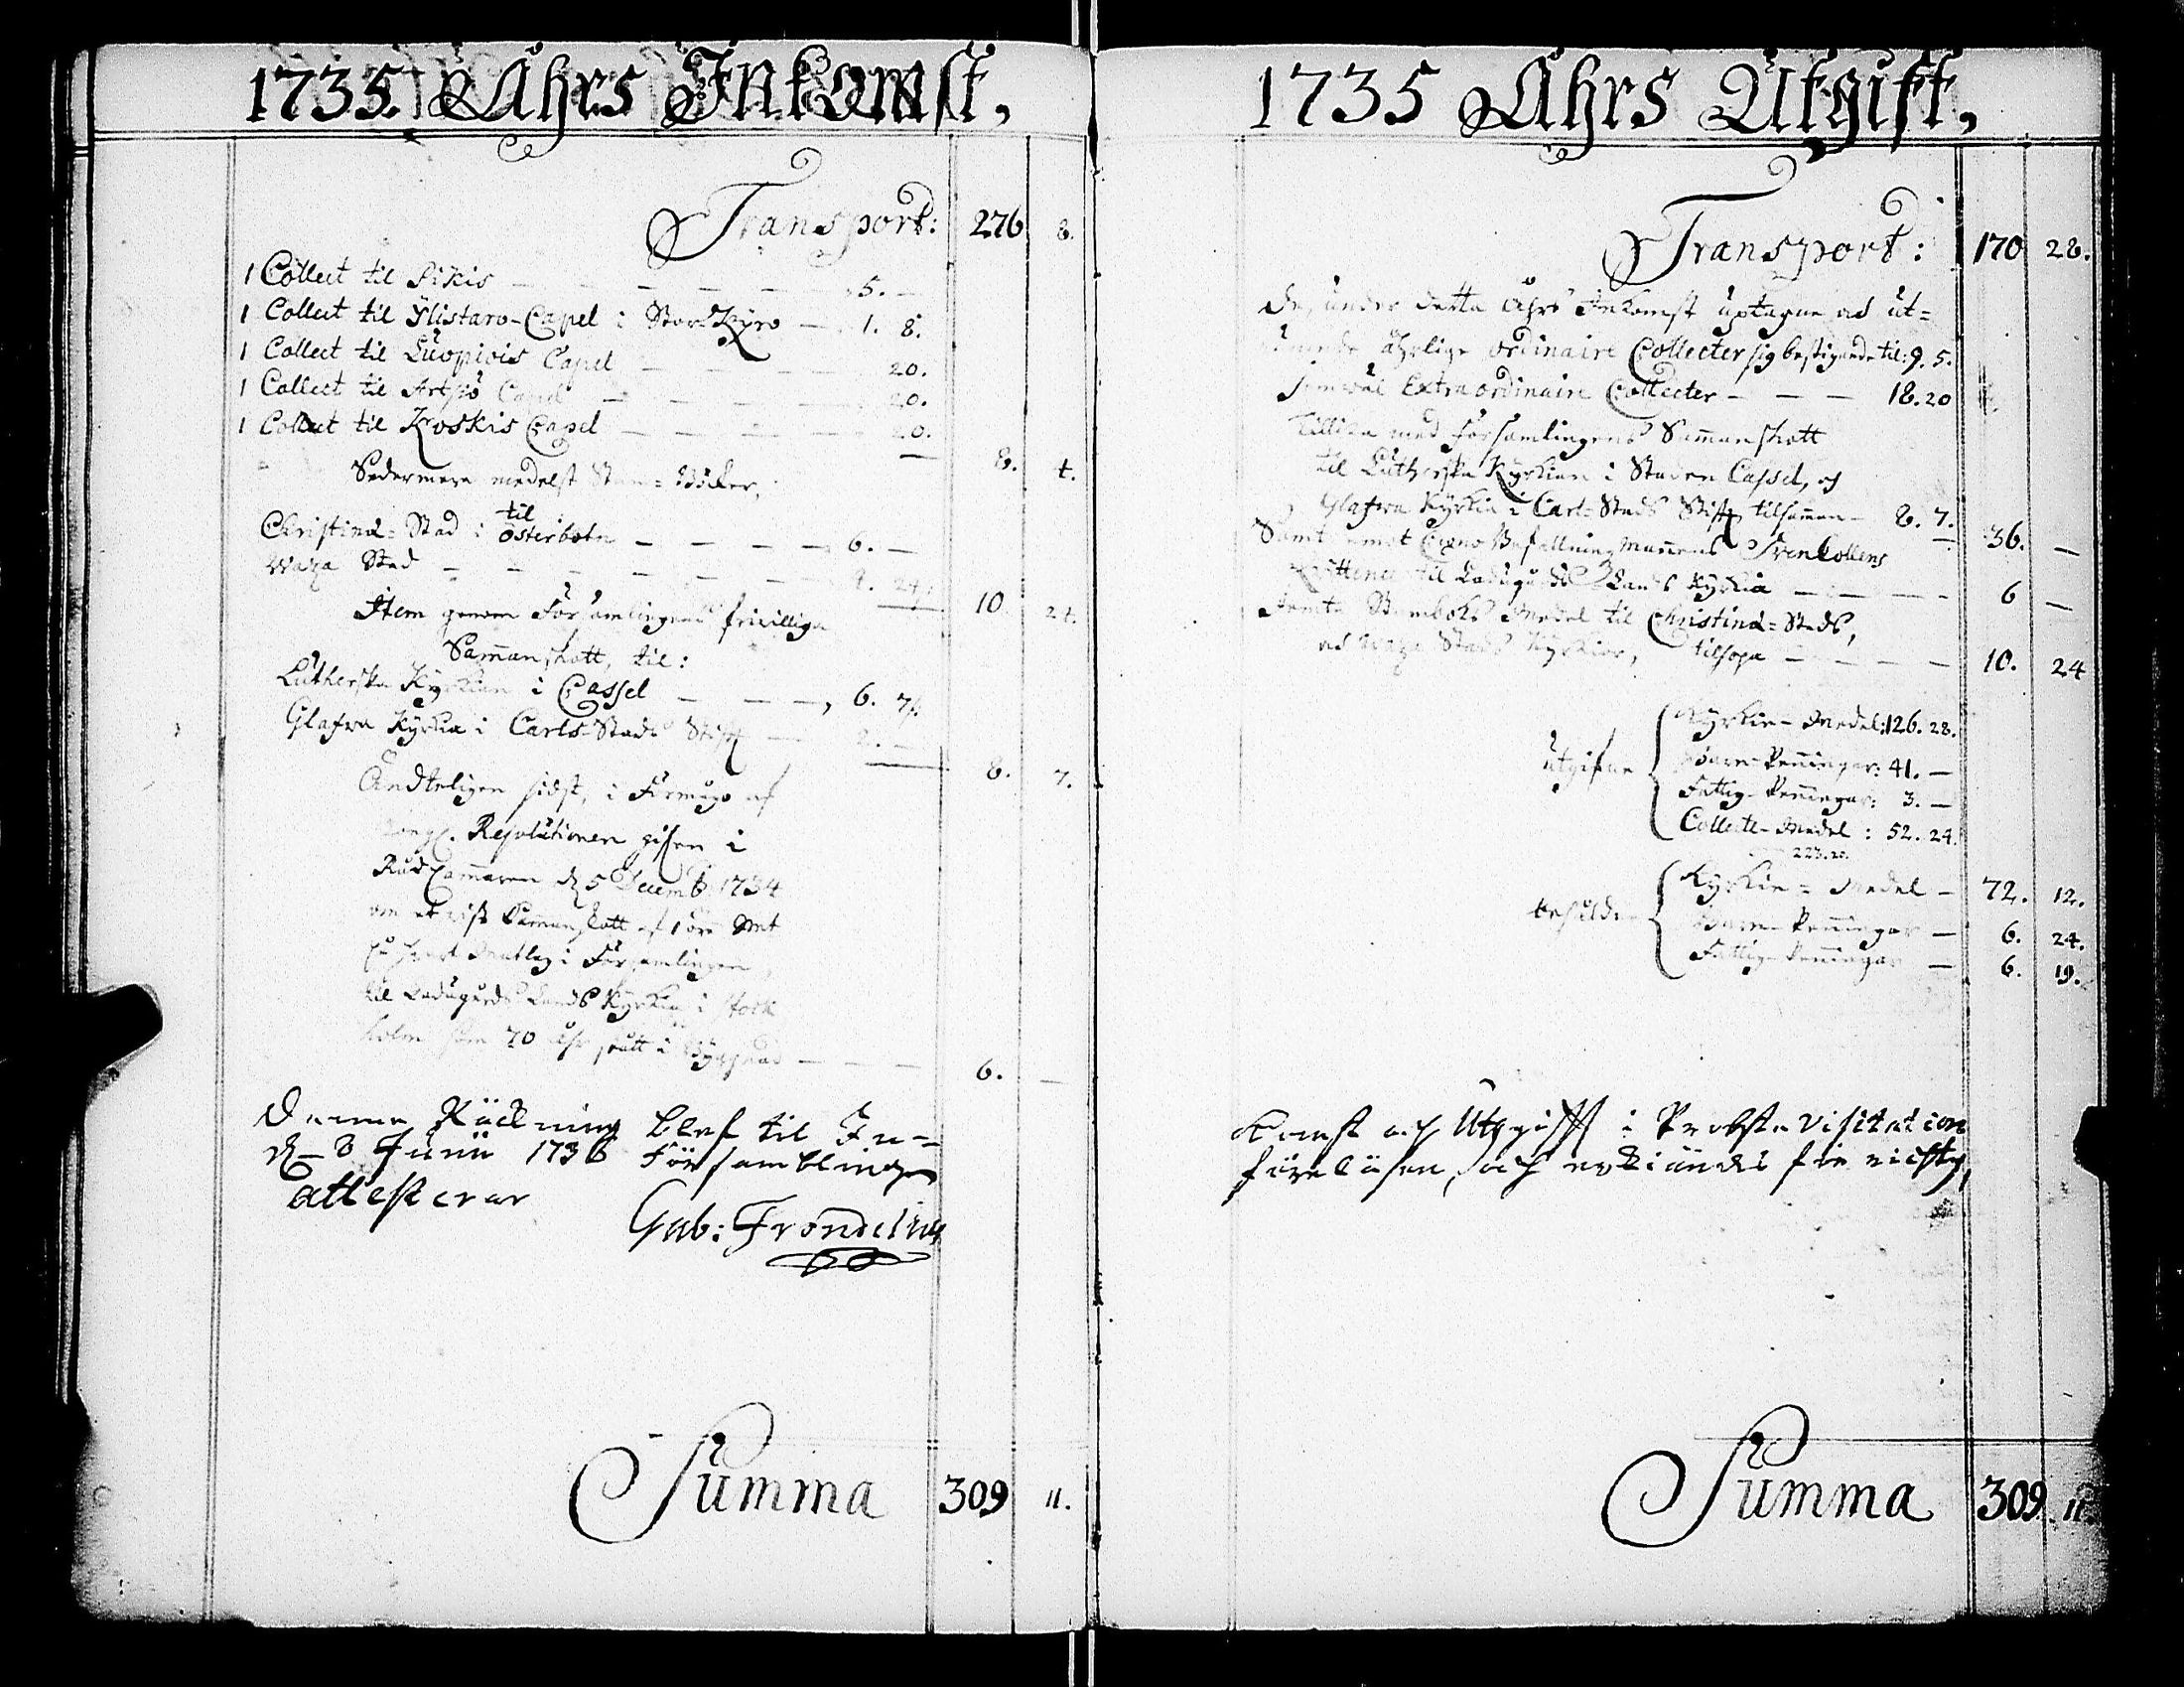 1735. Åhrs Inkomst,
Transport: 276 8.
1 Collect til Pikis — 5. —
1 Collect til Ylistaro-Capel i StorKyro — 1. 8.
1 Collect til Luopiois Capel — 20.
1 Collect til Artsjö Capel — 20.
1 Collect til Koskis Capel — 20.
8. 4.
Sedermera medelst Stam-Böcker,
til
Christinæ-Stad i Österbotn — 6. —
Waza Stad — 4. 24.
10. 24.
Item genom Församlingens friwilliga
Sammanskott, til:
Lutherska Kyrkian i Cassel —, 6. 7.
Glafwa Kyrkia i Carls-Stads Stifft — 2. —
8. 7.
Ändteligen sidst, i Förmågo af
Kongl. Resolutionen gifwen i
RådCammaren d. 5 Decemb. 1734
om et wist Sammanskott af 1 öre Smt
på hwart Matlag i Församlingen
til Ladugårds Lands Kyrkia i Stock
holm som 70 åhr stått i Byggnad —
6. —
Denne Räckning blef til In-
d. 8 Junii 1736 Församblingen
attesterar
Gab: Frondelius
Summa 309 11.
1735 Åhrs Utgift,
Transport: 170 28.
De, under detta Åhrs Inkomst uptagne och ut-
åhrlige ordinaire Collecter sig bestigande til: 9. 5.
somwäl Extraordinaire Collecter — 18. 20
Tillika med Församlingens Sammanskott
til Lutherska Kyrkian i Staden Cassel, och
Glafwa Kyrkia i Carl-Stads Stifft tilsamman — 8. 7.
36. —
Samt emot Crono Befallningsmannens Svenkollens
Quittence til Ladugårds Lands Kyrkia — 6 —
Jemte Stamboks Medel til Christinæ-Stads,
och Waza Stads Kyrkior, tilhopa — 10. 24
Utgifne
Kyrkie-Medel: 126. 28.
Penningar: 41. —
Fattig-Penningar: 3. —
Collecte-Medel: 52. 24.
223. 20.
behåldne
Kyrkie-Medel — 72. 12.
Penningar — 6. 24.
Fattig-Penningar — 6. 19.
komst och Utgifft i Probste Visitation
föreläsen, och erkiändes för richtig,
Summa 309. 11.